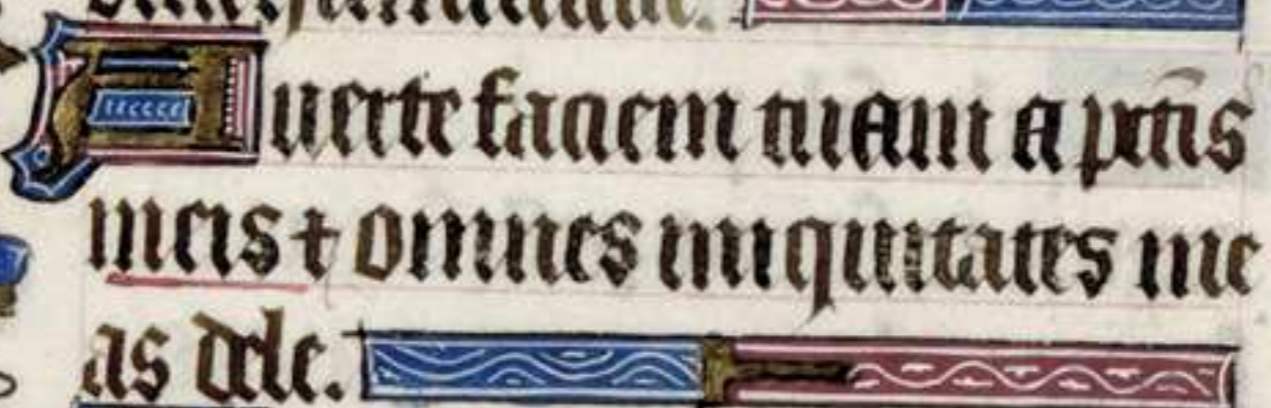 Auerte faciem tuam a pct̄is
meis ⁊ omnes iniquitates me
as dele.